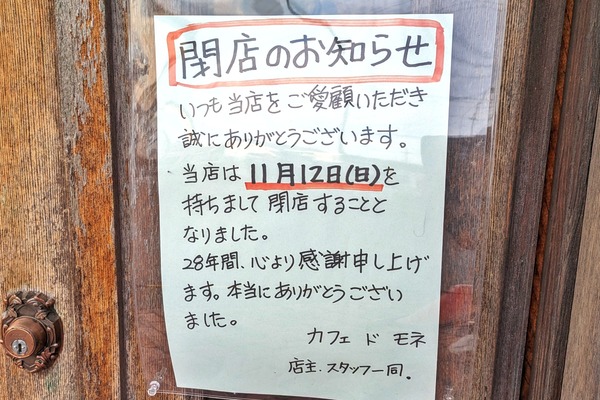 閉店のお知らせ
いつも当店をご愛顧いただき
誠にありがとうございます。
当店は11月12日(日)を
持ちまして閉店することと
なりました。
28年間、心より感謝申し上げ
ます。本当にありがとうござい
ました。
カフェ ド モネ
店主.スタッフ一同.